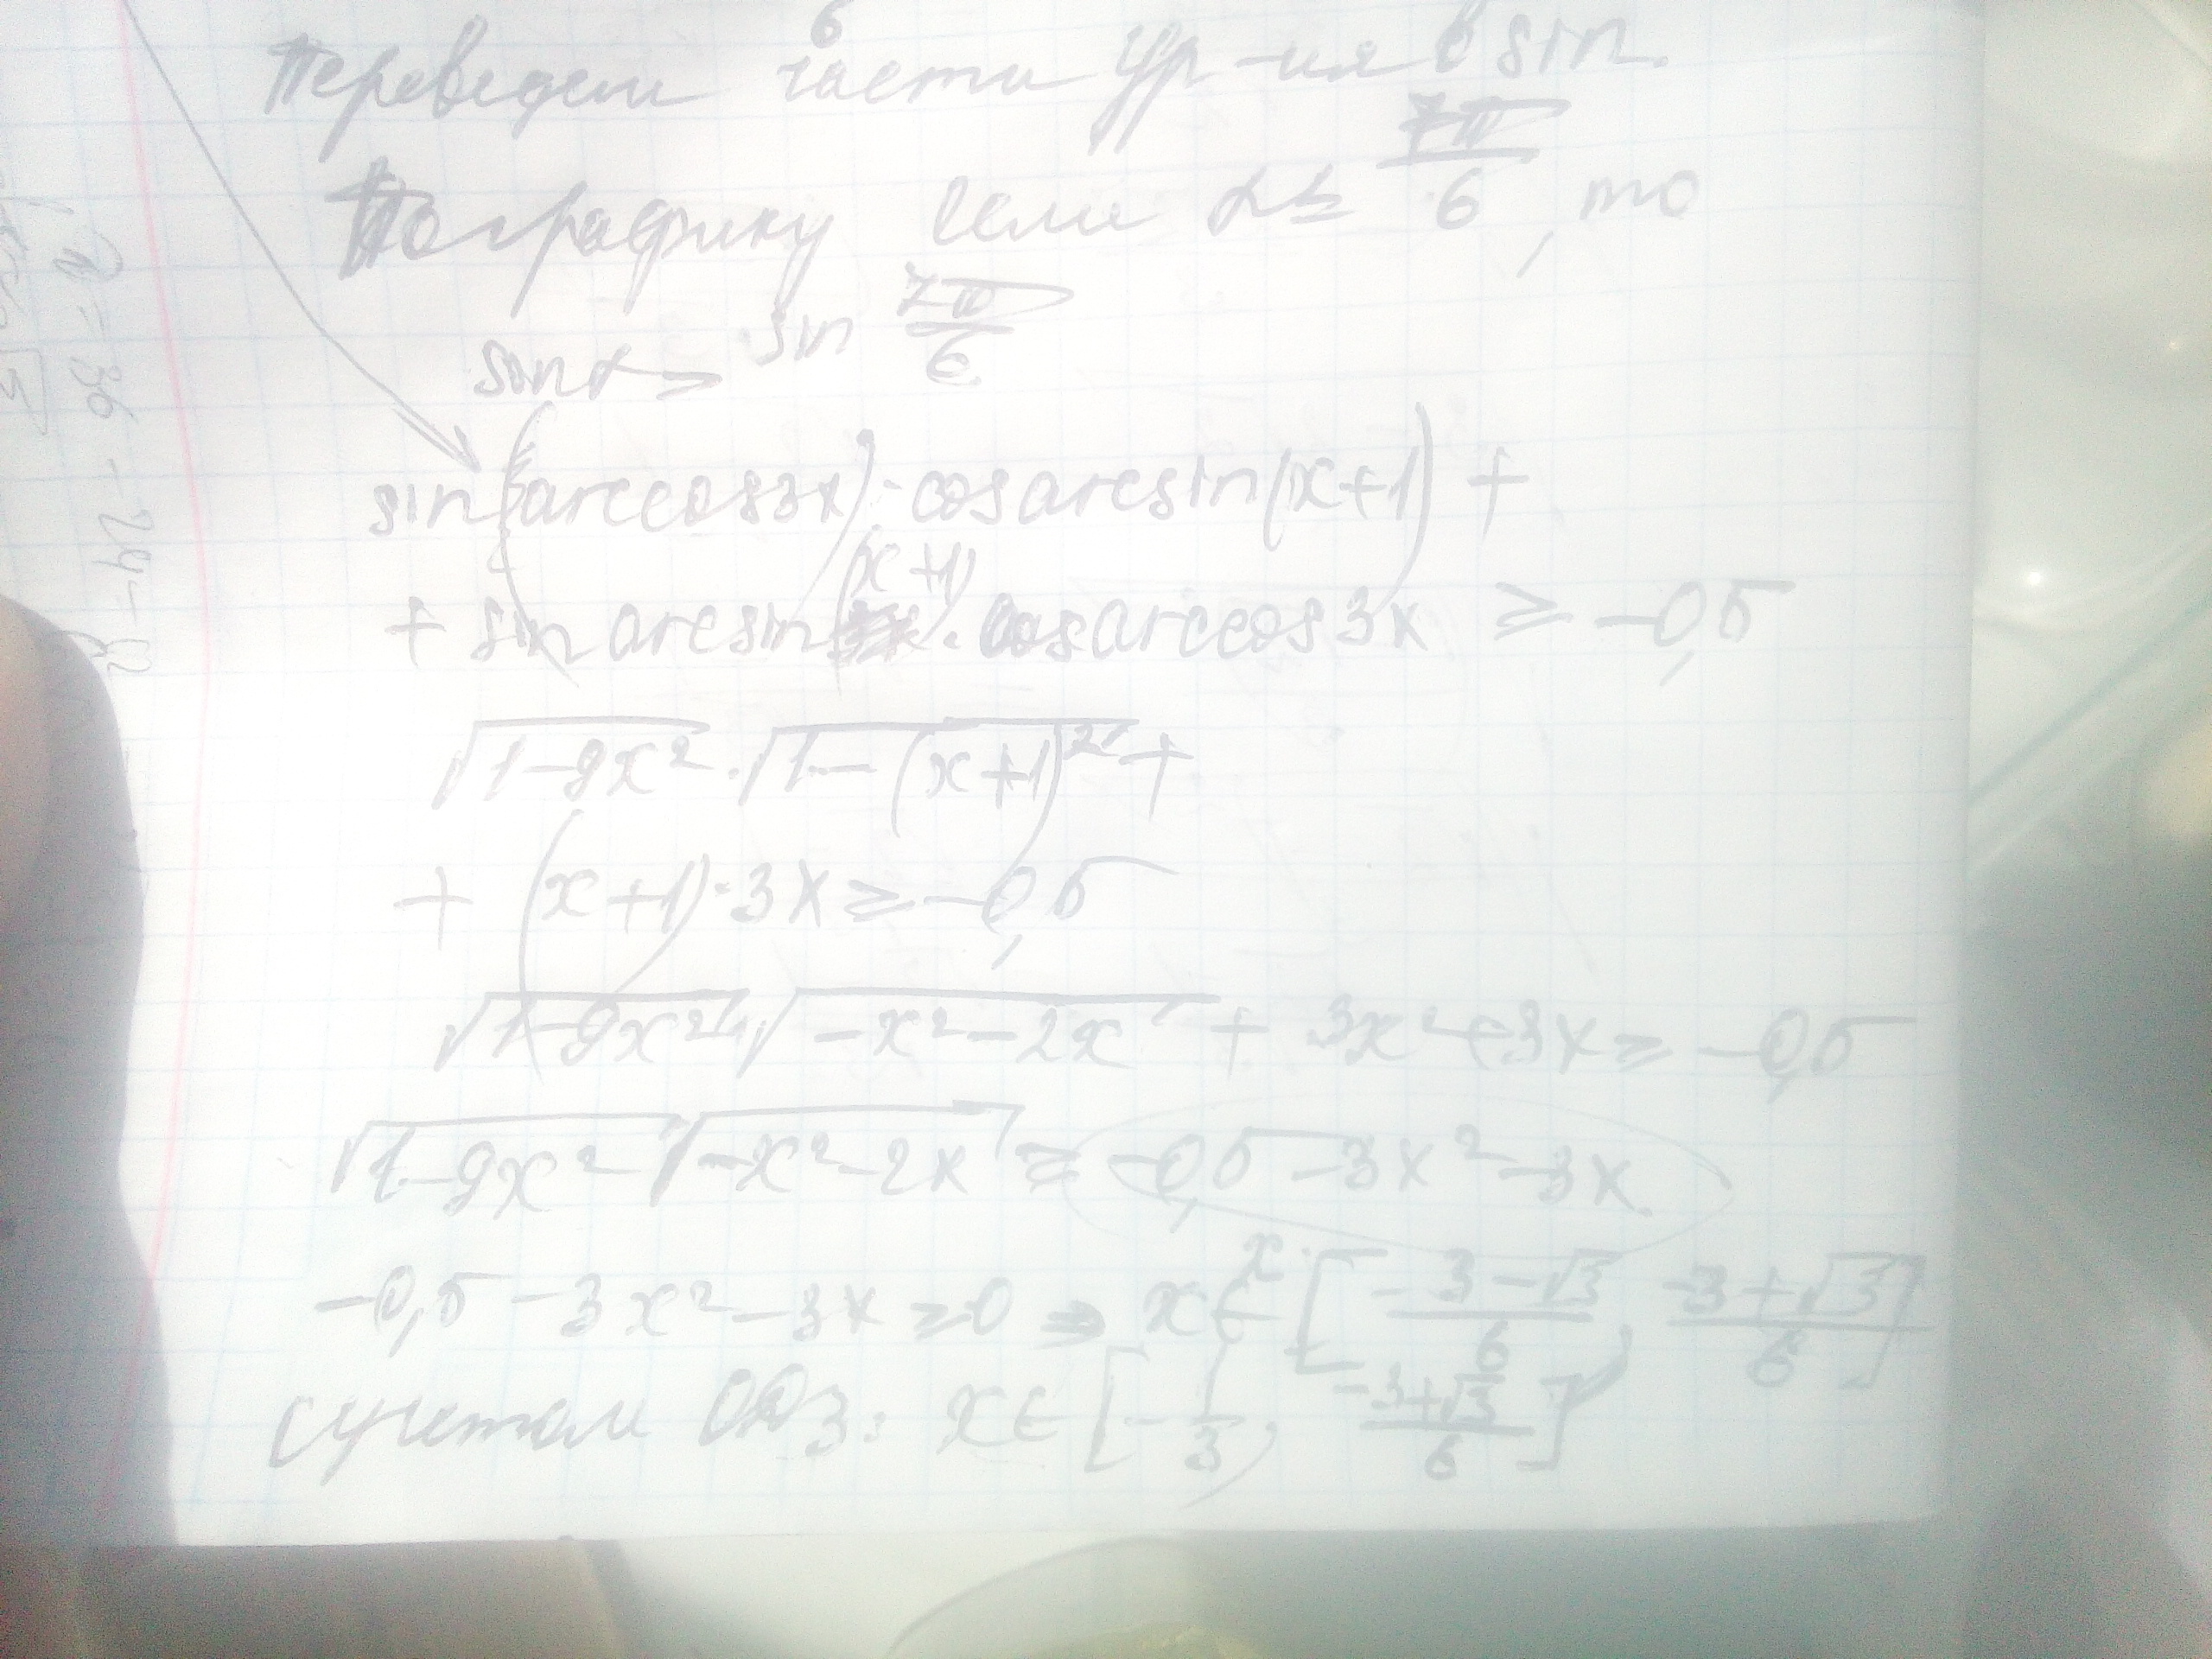 6
Переведем части ур-ия в sin.
По графику если α ≤ 7π/6, то
sinα ≥ sin 7π/6
sin(arccos3x)·cosarcsin(x+1) +
+ sinarcsin(x+1)·cosarccos3x ≥ -0,5
√(1-9x²)·√(1-(x+1)²) +
+ (x+1)·3x ≥ -0,5
√(1-9x²)·√(-x²-2x) + 3x²+3x ≥ -0,5
√(1-9x²)√(-x²-2x) ≥ -0,5-3x²-3x
-0,5-3x²-3x ≥ 0 ⇒ x ∈ [(-3-√3)/6, (-3+√3)/6]
С учетом ОДЗ: x ∈ [-1/3, (-3+√3)/6]